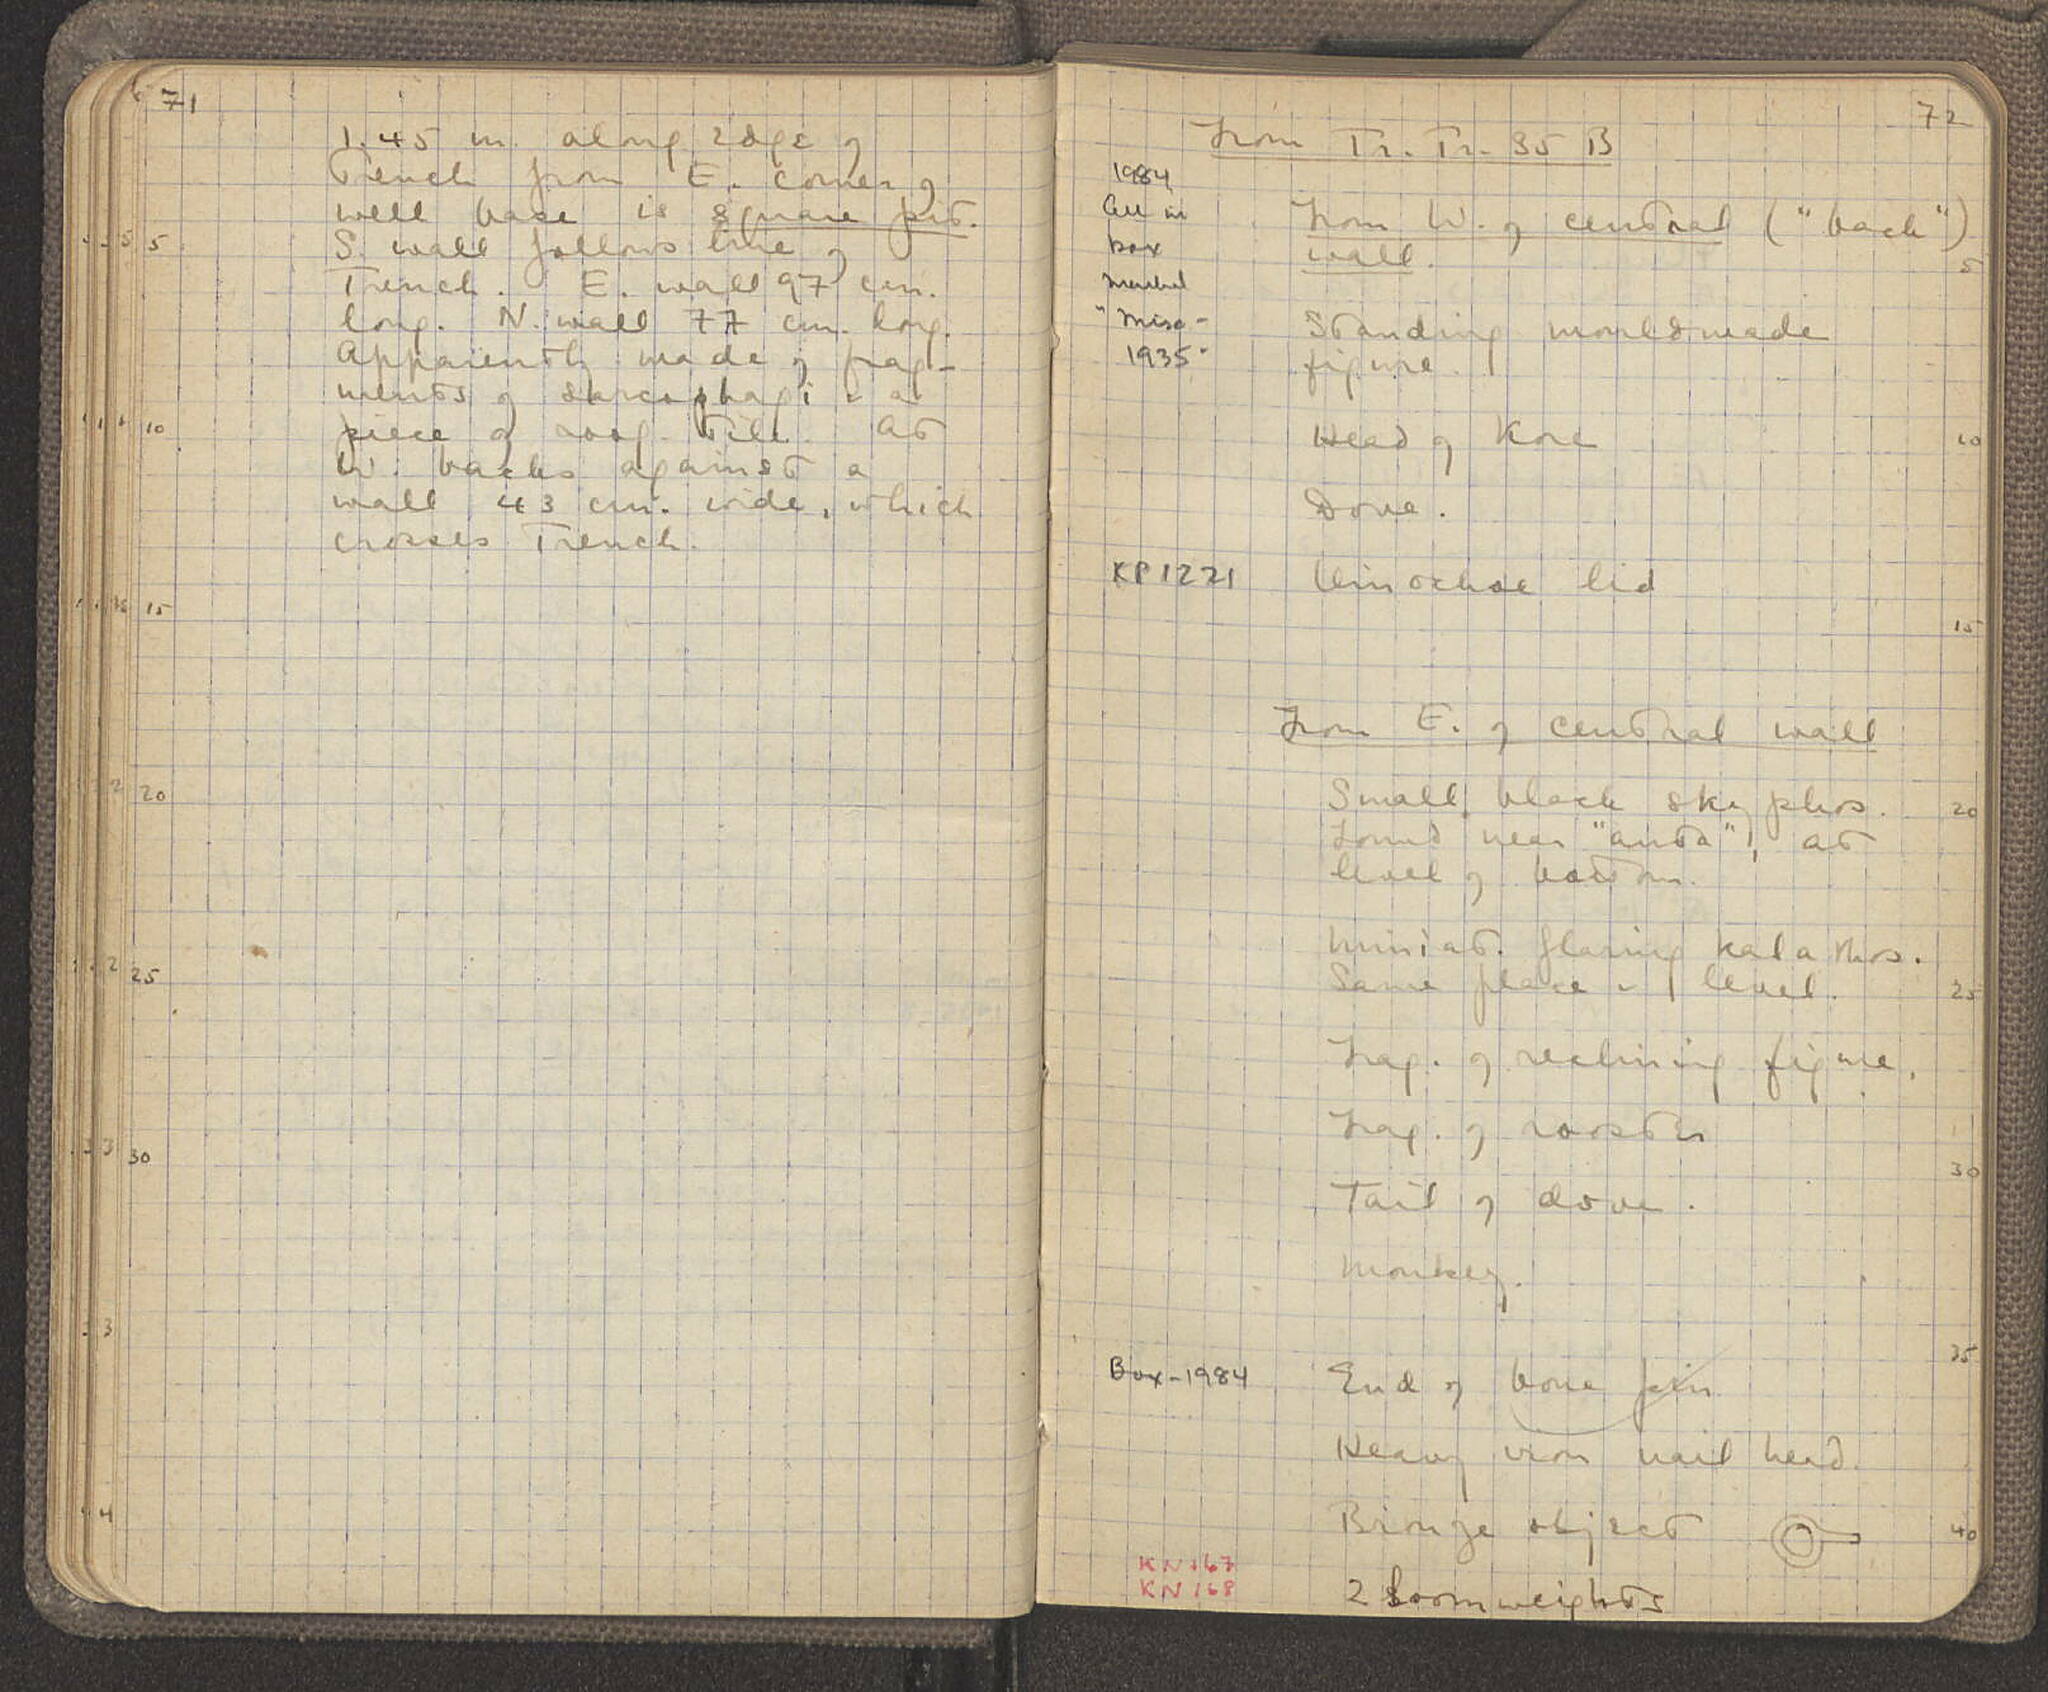 71
1.45 m. along edge of
Trench from E. corner of
well base is square pit.
S. wall follows line of
Trench. E. wall 97 cm.
long. N. wall 77 cm. long.
Apparently made of frag-
ments of sarcophagi & a
piece of roof tile. At
W. backs against a
wall 43 cm. wide, which
crosses Trench.
5
10
15
20
25
30
72
From Tr. Tr. 35 B
1984
All in
box
marked
"Misc-
1935"
From W. of central ("back")
wall.
Standing mouldmade
figure.
Head of Kore
Dove.
KP1221 Oinochoe lid
From E. of central wall
Small black skyphos.
Found near "anta", at
level of bottom.
Miniat. flaring kalathos.
Same place & level.
Frag. of reclining figure.
Frag. of rooster
Tail of dove.
Monkey.
Box-1984 End of bone pin
Heavy iron nail head.
Bronze object
KN167
KN168
2 Loomweights
5
10
15
20
25
30
35
40